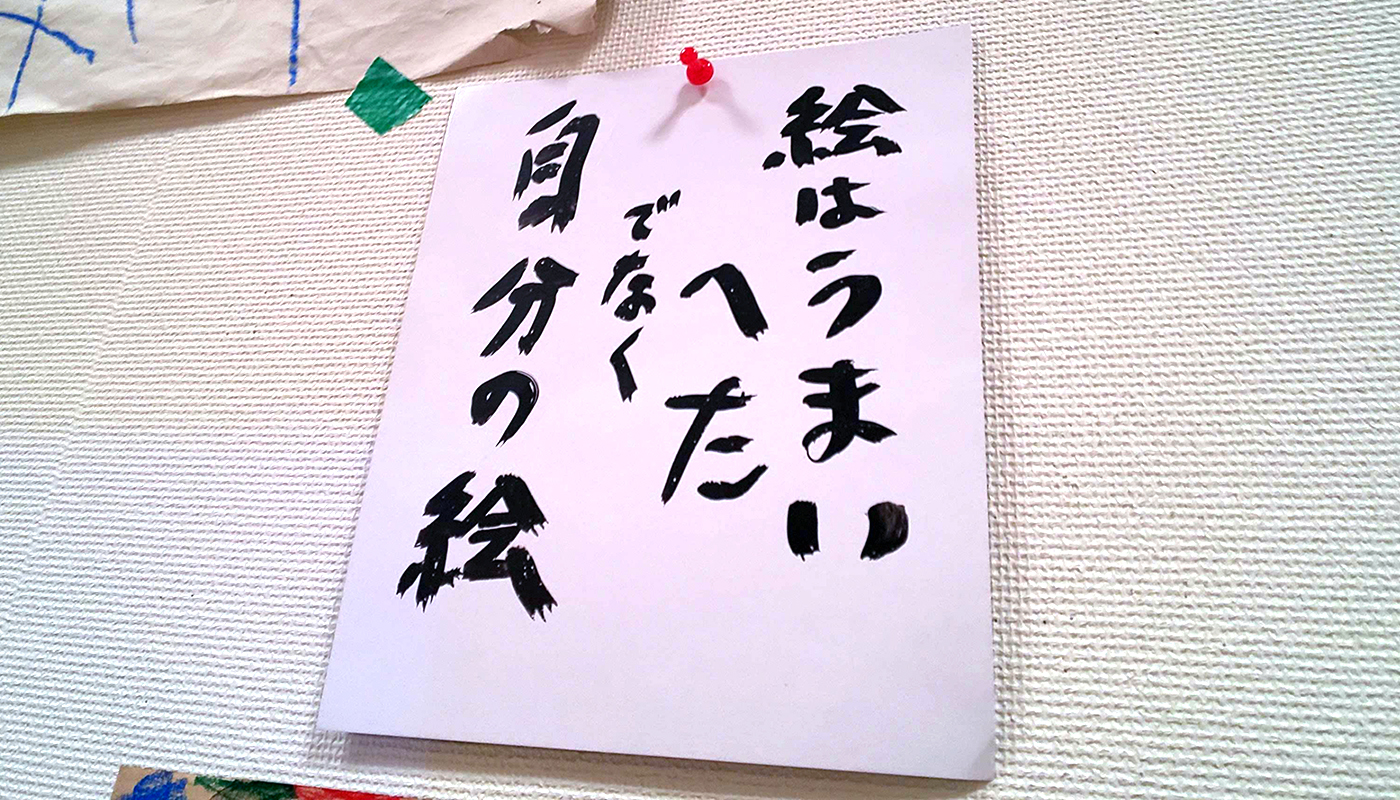 絵はうまい
へた
でなく
自分の絵